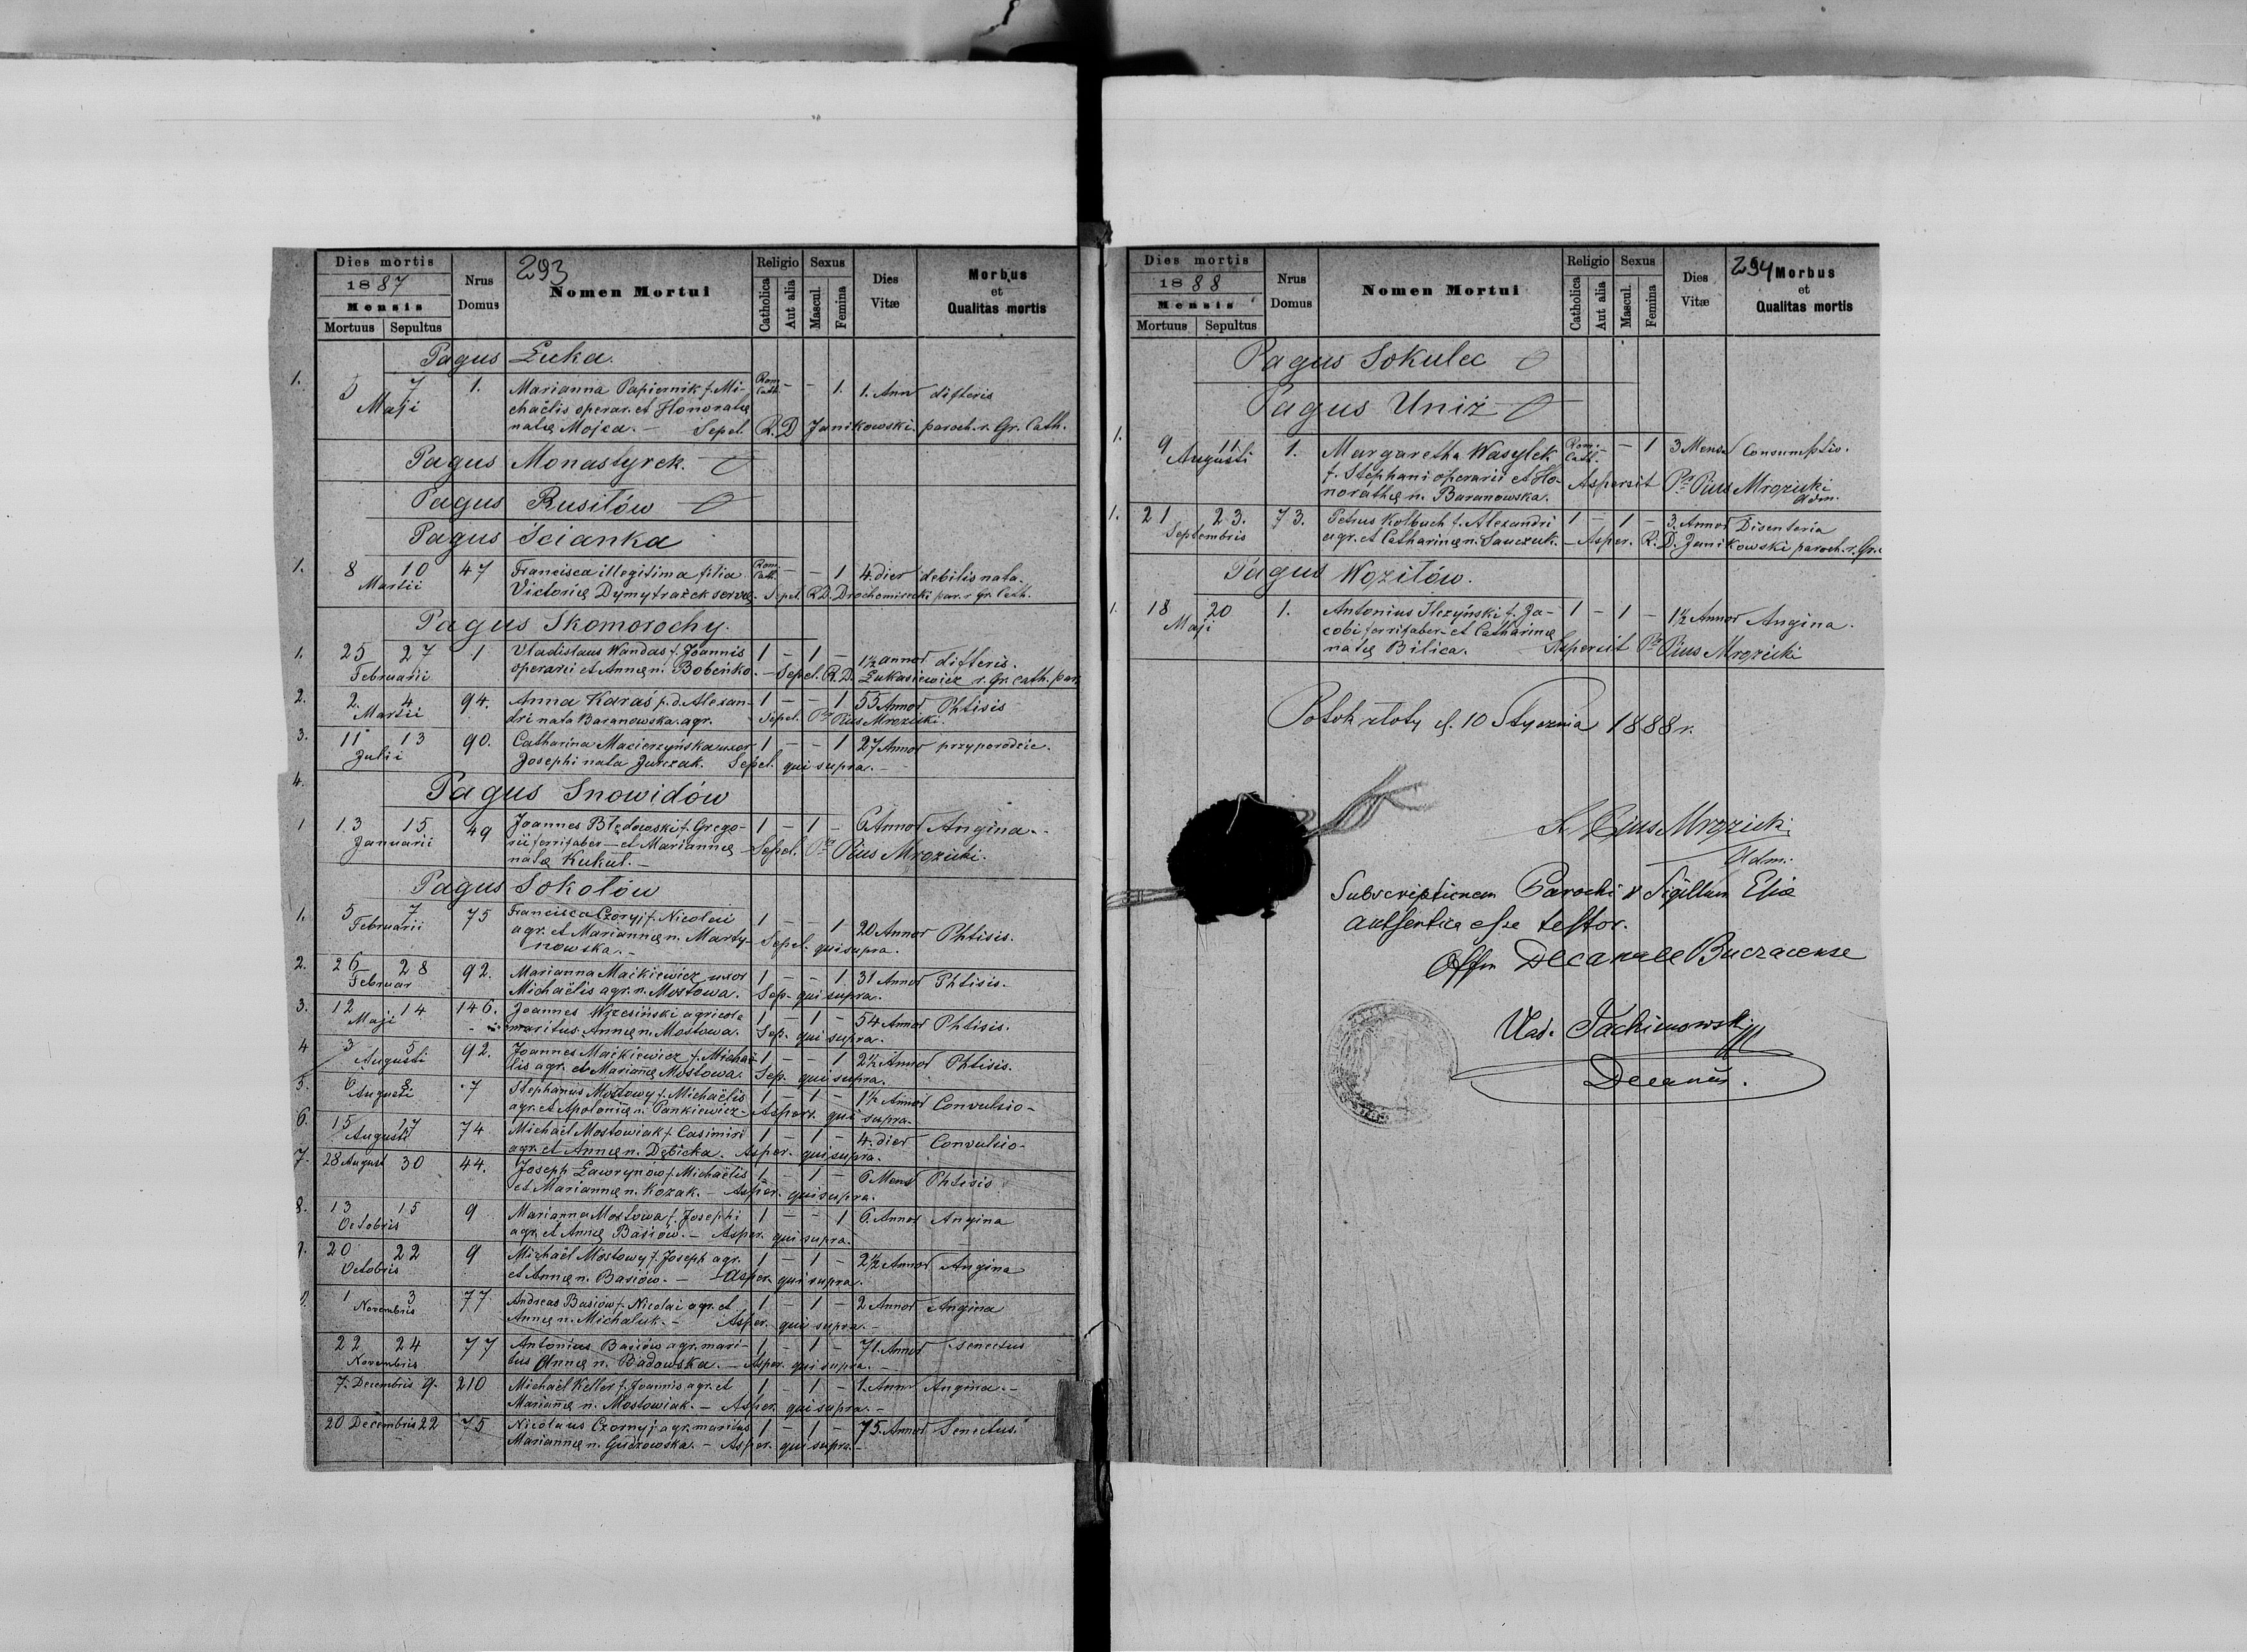 Dies mortis
1887
Mensis
Mortuus Sepultus
Nrus Domus
293
Nomen Mortui
Religio
Catholica
Aut alia
Sexus
Mascul.
Femina
Dies Vitæ
Morbus et Qualitas mortis
Pagus Łuka.
1. 5 7 1. Marianna Papiernik f. Mi- Rom. Cath. - - 1. 1. Ann difteris
Maji chaëlis operar. et Honoratę
natę Mojca. - Sepel. R. D Janikowski. paroch. r. Gr. Cath.
Pagus Monastyrek.
Pagus Rusiłów
Pagus Ścianka
1. 8 10 47 Francisca illegitima filia Rom. Cath. - - 1 4. dier debilis nata.
Martii Victorię Dymytrażek servę. Sepel. R. D. par. r gr. Cath.
Pagus Skomorochy.
1. 25 27 1 Vladislaus Wandas f. Joannis 1 - 1 - 1½ annor difteris.
Februarii operarii et Annę n. Bobeńko. - Sepel. R. D. Łukasiewicz r. Gr. Cath. par.
2. 2. 4 94. Anna Karaś p. d. Alexan- 1 - - 1 55 Annor Phtisis
Martii dri nata Baranowska. agr. - Sepel. Pr Pius Mrozicki.
3. 11 13 90. Catharina Macierzyńska uxor 1 - - 1 27 Annor przy porodzie.
Julii Josephi nata Jurczak. Sepel. qui supra. -
4.
Pagus Snowidów
1 13 15 49 Joannes Błędowski f. Grego- 1 - 1 - 6 Annor Angina. -
Januarii rii ferrifaber - et Mariannę - Sepel. Pr Pius Mrozicki.
natę Kukul. -
Pagus Sokołów
1. 5 7 75 Francisca Czornyj f. Nicolai 1 - - 1 20 Annor Phtisis.
Februarii agr. et Mariannę n. Marty- Sepel. qui supra.
nowska. -
2. 26 28 92. Marianna Maikiewicz uxor 1 - - 1 31 Annor Phtisis.
Februar Michaëlis agr. n. Mostowa. Sep. qui supra.
3. 12 14 146. Joannes Wrzesiński agricola 1 - 1 - 54 Annor Phtisis.
Maji maritus Annę n. Mostowa. Sep. qui supra.
4 3 5 92. Joannes Maikiewicz f. Michaë- 1 - - 1 2½ Annor Phtisis.
Augusti lis agr. et Mariannę Mostowa. Sep. qui supra.
5. 6 8 7 Stephanus Mostowy f. Michaëlis 1 - 1 - 1½ Annor Convulsio-
Augusti agr. et Apolonię n. Pankiewicz - Aspers. qui supra.
6. 15 17 74 Michaël Mostowiak f. Casimiri 1 - 1 - 4. dier Convulsio-
Augusti agr. et Annę n. Dębicka. Asper. qui supra.
7. 28 August 30 44. Joseph Ławrynów f. Michaëlis 1 - 1 - 6 Mens Phtisis
et Mariannę n. Kozak. - Asper. qui supra.
8. 13 15 9 Marianna Mostowa f. Josephi 1 - - 1 6. Annor Angina
Octobris agr. et Annę Basiów. - Asper. qui supra.
9. 20 22 9 Michaël Mostowy f. Joseph agr. 1 - 1 - 2½ Annor Angina
Octobris et Annę n. Basiów. - Asper. qui supra.
1 3 77 Andreas Basiów f. Nicolai agr. et 1 - 1 - 2 Annor Angina
Novembris Annę n. Michaluk. - Asper. qui supra. -
22 24 77 Antonius Basiów agr. mari- 1 - 1 - 71. Annor Senectus
Novembris tus Annę n. Badowska. - Asper. qui supra. -
7. Decembris 9. 210 Michaël Keller f. Joannis agr. et 1 - 1 - 1. Annor Angina. -
Mariannę n. Mostowiak. - Asper. qui supra. -
20 Decembris 22 75 Nicolaus Czornyj agr. maritus 1 - 1 - 75. Annor Senectus.
Mariannę n. Gudzowska. - Asper. qui supra. -
Dies mortis
1888
Mensis
Mortuus Sepultus
Nrus Domus
Nomen Mortui
Religio
Catholica
Aut alia
Sexus
Mascul.
Femina
Dies Vitæ
294
Morbus et Qualitas mortis
Pagus Sokulec
Pagus Uniż
1. 9 11 1. Margaretha Wasylek Rom. Cath. - - 1 3 Mens Consumptio.
Augusti f. Stephani operarii et Ho- Aspersit Pr Pius Mrozicki
norathę n. Baranowska. Adm.
1. 21 23. 73. Petrus Kolbuch f. Alexandri 1 - 1 - 3. Annor Disenteria
Septembris agr. et Catharinę n. Sauczuk. - Asper. R. D. Janikowski paroch. r. Gr. c
Pagus Woziłów.
1. 18 20 1. Antonius Ilczyński f. Ja- 1 - 1 - 1½ Annor Angina.
Maji cobi ferrifaber - et Catharinę Aspersit Pr Pius Mrozicki
natę Bilica.
Potok złoty d. 10 Stycznia 1888 r.
X Pius Mrozicki
Adm.
Subscriptionem Parochi & Sigillum Elię
authentica esse testor.
Offm Decanale Buczacense
Vlad. Jachimowski
Decanus.